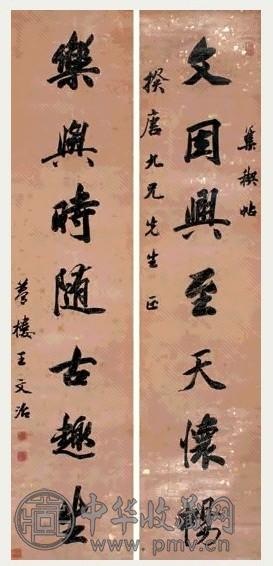 集禊帖
文因興至天懷暢
揆唐九兄先生正
樂與時随古趣生
夢樓王文治
中华收藏网
www.pmv.cn